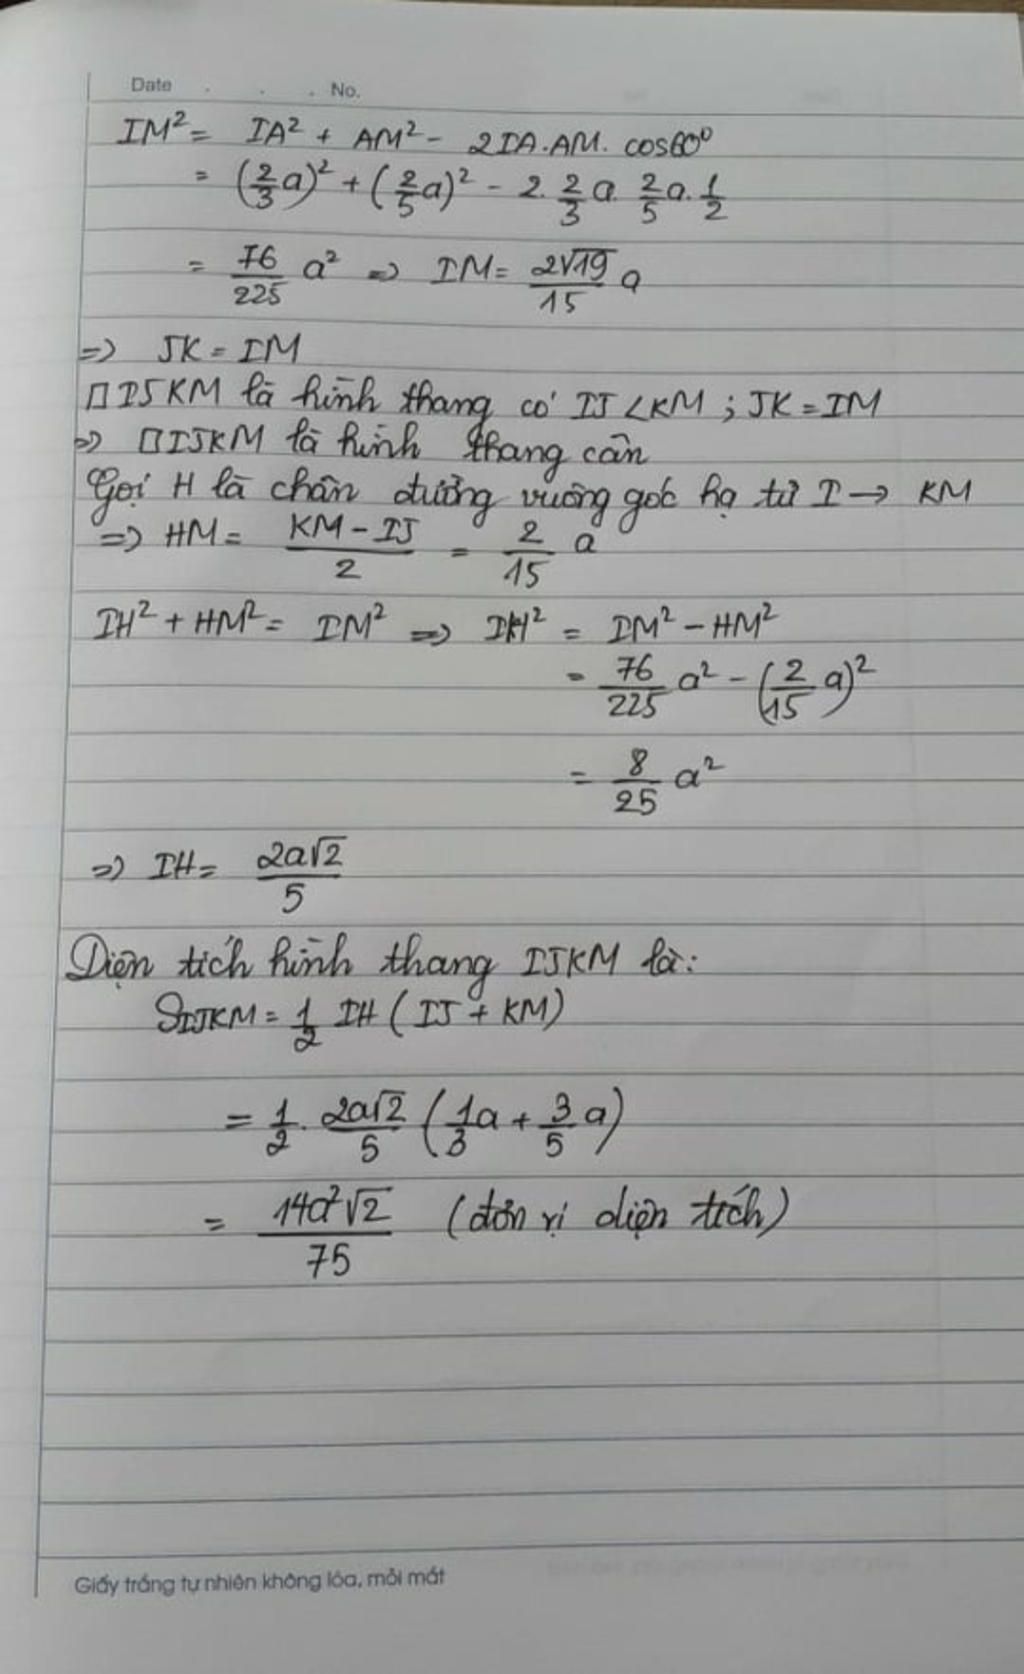 Date . . . No.
IM² = IA² + AM² - 2IA.AM. cos60⁰
= (2/3 a)² + (2/5 a)² - 2. 2/3 a. 2/5 a. 1/2
= 76/225 a² => IM = 2√19/15 a
=> JK = IM
□IJKM là hình thang có IJ < KM ; JK = IM
=> □IJKM là hình thang cân
Gọi H là chân đường vuông góc hạ từ I → KM
=> HM = (KM - IJ)/2 = 2/15 a
IH² + HM² = IM² => IH² = IM² - HM²
= 76/225 a² - (2/15 a)²
= 8/25 a²
=> IH = 2a√2/5
Diện tích hình thang IJKM là:
S_IJKM = 1/2 IH (IJ + KM)
= 1/2 . 2a√2/5 (1/3 a + 3/5 a)
= 14a²√2/75 (đơn vị diện tích)
Giấy trắng tự nhiên không lóa, mỏi mắt